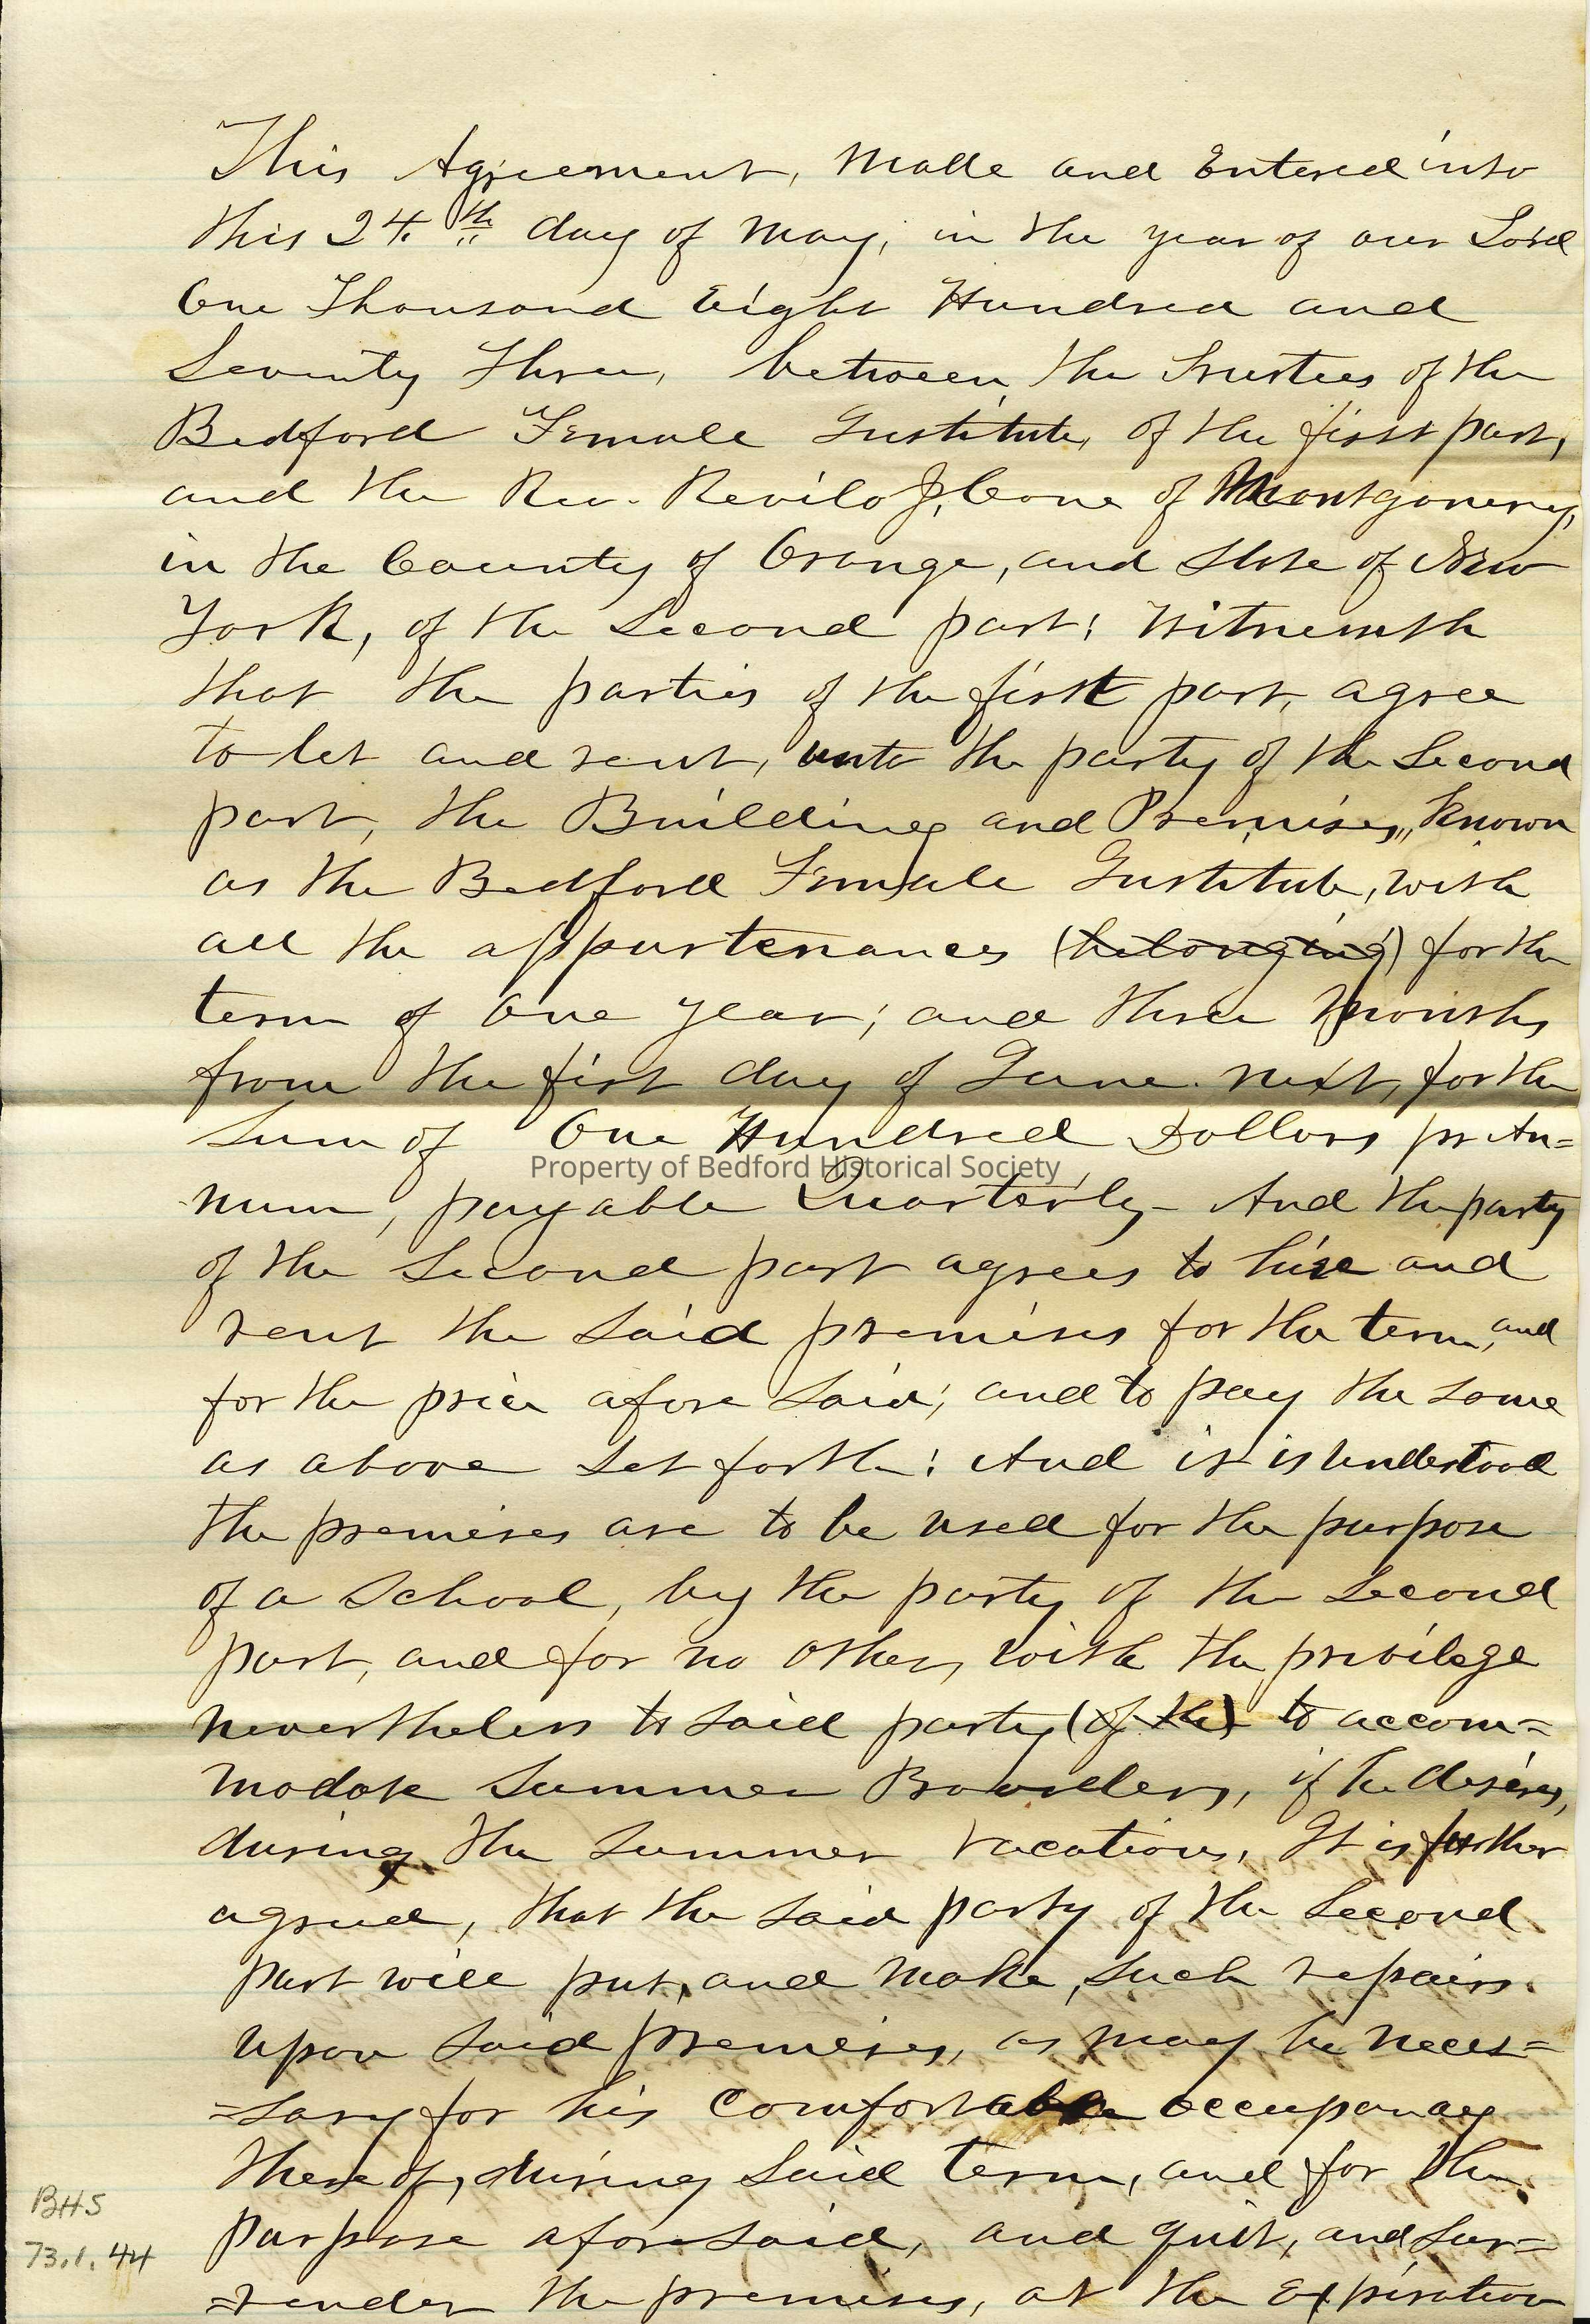 This Agreement, Made and Entered into
this 24.th day of May, in the year of our Lord
One Thousand Eight Hundred and
Seventy Three, between the Trustees of the
Bedford Female Institute, of the first part,
and the Rev. Revilo J. Cone of Montgomery,
in the County of Orange, and State of New
York, of the Second part; Witnesseth
that the parties of the first part, agree
to let and rent, unto the party of the Second
part, the Building and Premises, known
as the Bedford Female Institute, with
all the appurtenances (belonging) for the
term of One year; and three Months
from the first day of June next, for the
Sum of One Hundred Dollars pr An=
num, payable Quarterly - And the party
of the Second part agrees to hire and
rent the Said premises for the term, and
for the price afore Said; and to pay the same
as above Set forth: And it is Understood
the premises are to be used for the purpose
of a School, by the party of the Second
part, and for no other, with the privilege
nevertheless to Said party (of the) to accom=
modate Summer Boarders, if he desires,
during the Summer vacation, It is further
agreed, that the Said party of the Second
part will put, and make, Such repairs
upon Said premises, as may be neces=
=sary for his Comfortable occupancy
there of, during Said term, and for the
purpose afore said, and quit, and Sur=
=render the premises, at the Expiration
Property of Bedford Historical Society
BHS
73.1.44